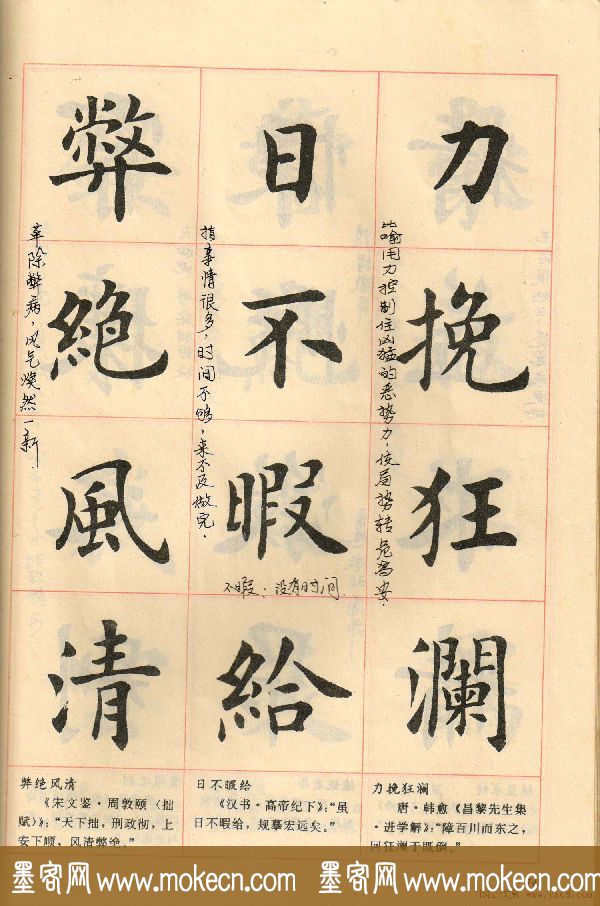 力挽狂澜
比喻用力控制住凶猛的恶势力，使局势转危为安.
日不暇給
指事情很多，时间不够，来不及做完.
不暇：没有时间
弊絶風清
革除弊病，风气焕然一新
力挽狂澜
唐·韩愈《昌黎先生集
·进学解》：“障百川而东之，
回狂澜于既倒。”
日不暇给
《汉书·高帝纪下》：“虽
日不暇给，规摹宏远矣。”
弊绝风清
《宋文鉴·周敦颐〈拙
赋〉》：“天下拙，刑政彻，上
安下顺，风清弊绝。”
墨客网 www.mokecn.com 墨客网 www.mokecn.com